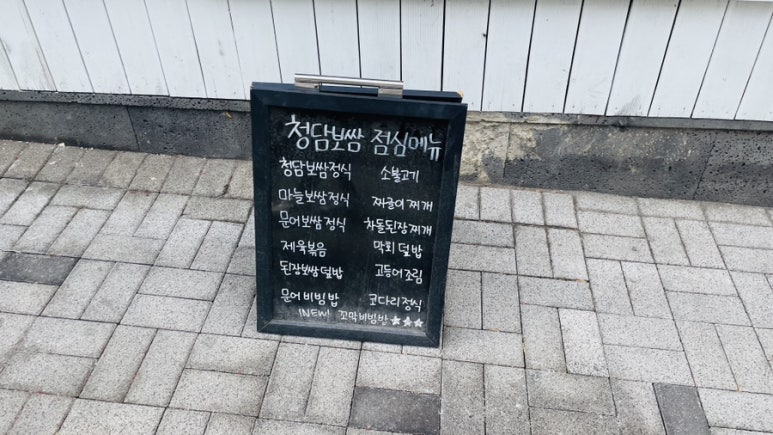 청담보쌈 점심메뉴
청담보쌈정식 소불고기
마늘보쌈정식 짜글이찌개
문어보쌈정식 차돌된장찌개
제육볶음 막회덮밥
된장보쌈덮밥 고등어조림
문어비빔밥 코다리정식
NEW! 꼬막비빔밥 ★★★